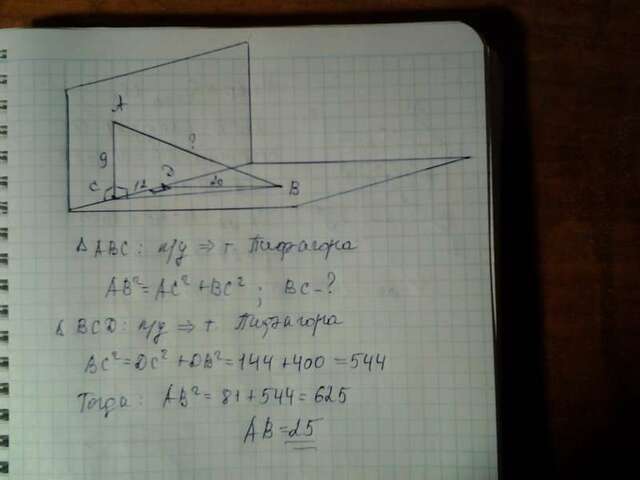 A
?
9
C 12 D 20 B
Δ ABC: п/у ⇒ т. Пифагора
AB² = AC² + BC² ; BC - ?
Δ BCD: п/у ⇒ т. Пифагора
BC² = DC² + DB² = 144 + 400 = 544
Тогда: AB² = 81 + 544 = 625
AB = 25